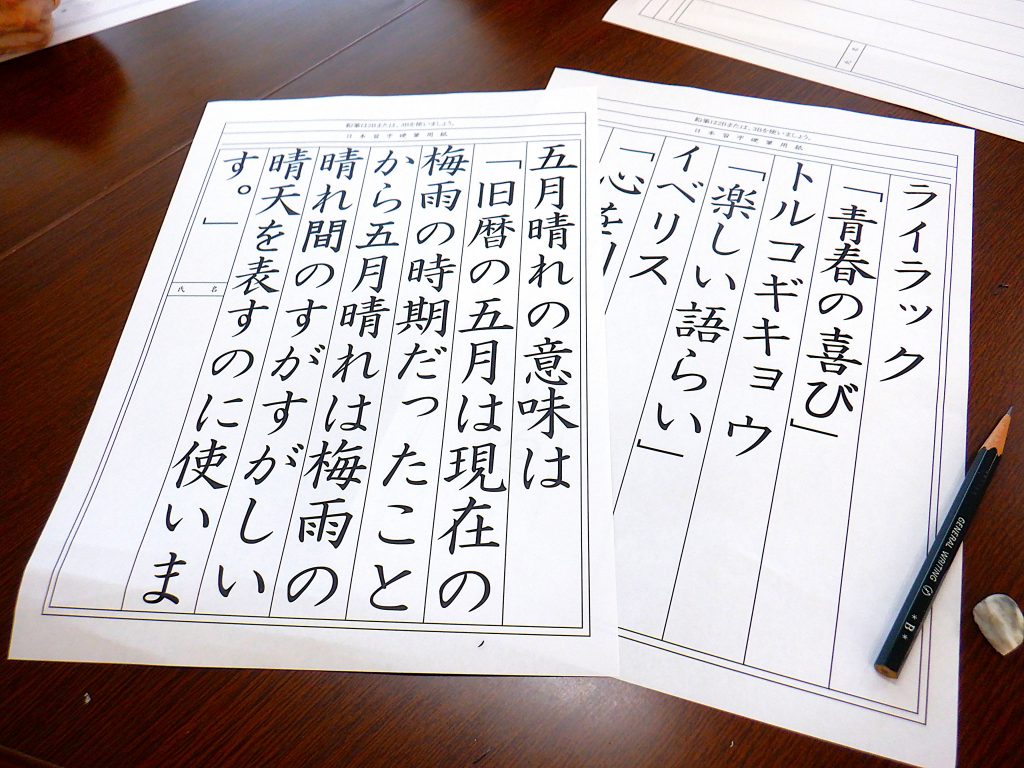 鉛筆は2Bまたは、3Bを使いましょう。
日本習字硬筆用紙
五月晴れの意味は
「旧暦の五月は現在の
梅雨の時期だったこと
から五月晴れは梅雨の
晴れ間のすがすがしい
晴天を表すのに使いま
す。」
氏名
鉛筆は2Bまたは、3Bを使いましょう。
日本習字硬筆用紙
ライラック
「青春の喜び」
トルコギキョウ
「楽しい語らい」
イベリス
「心を
GENERAL WRITING
*B*